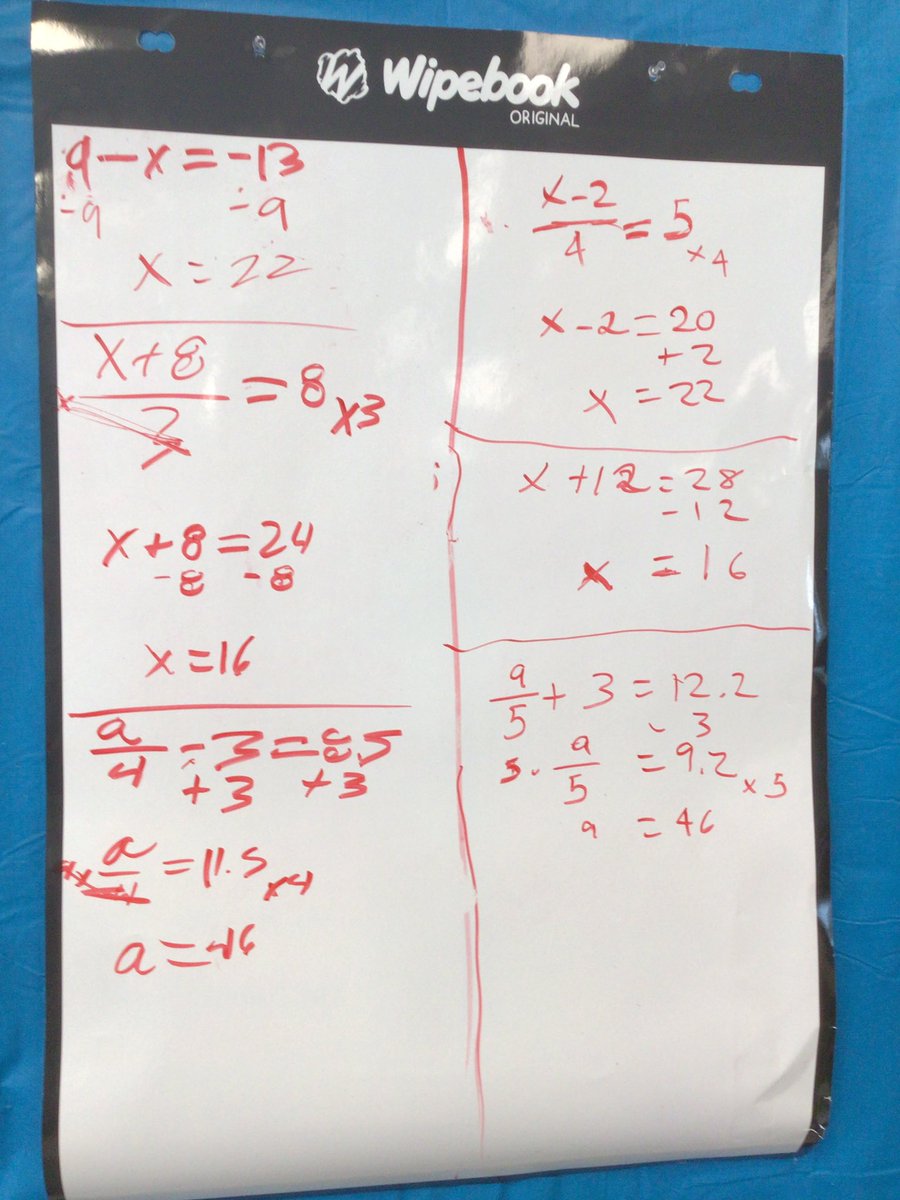 Wipebook
ORIGINAL
9 - x = -13
-9 -9
x = 22
x+8/3 = 8 x3
x+8=24
-8 -8
x=16
a/4 - 3 = 8.5
+3 +3
a/4 = 11.5 x4
a=46
x-2/4 = 5 x4
x-2=20
+2
x=22
x+12=28
-12
x=16
a/5 + 3 = 12.2
-3
5. a/5 = 9.2 x5
a = 46